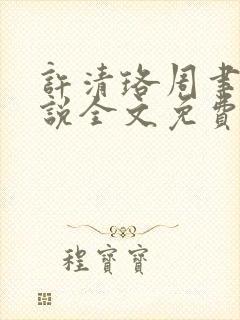 許清珞周聿
說全文免費
程寶寶